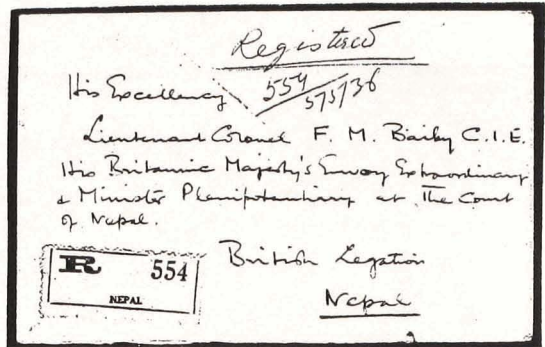 Registered
554
5/5/36
His Excellency
Lieutenant Colonel F. M. Baily C.I.E.
His Britannic Majesty's Envoy Extraordinary
& Minister Plenipotentiary at The Court
of Nepal.
British Legation
Nepal
R 554
NEPAL